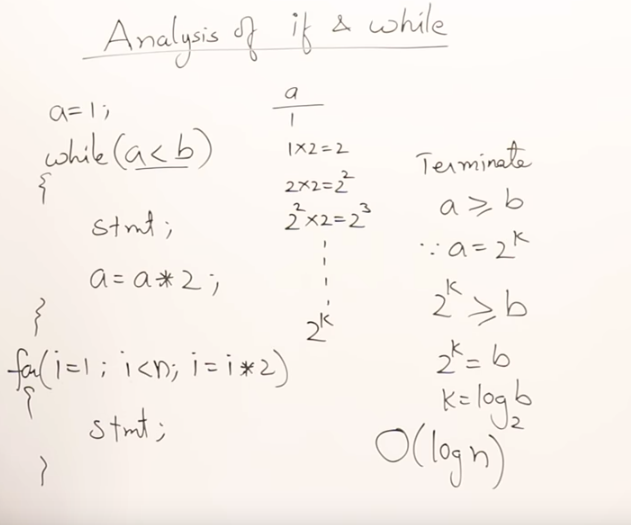 Analysis of if & while
a=1;
while(a<b)
{
stmt;
a=a*2;
}
for(i=1; i<n; i=i*2)
{
stmt;
}
a
1
1×2=2
2×2=2²
2²×2=2³
2ᵏ
Terminate
a≥b
∵ a=2ᵏ
2ᵏ≥b
2ᵏ=b
k=log₂b
O(log n)